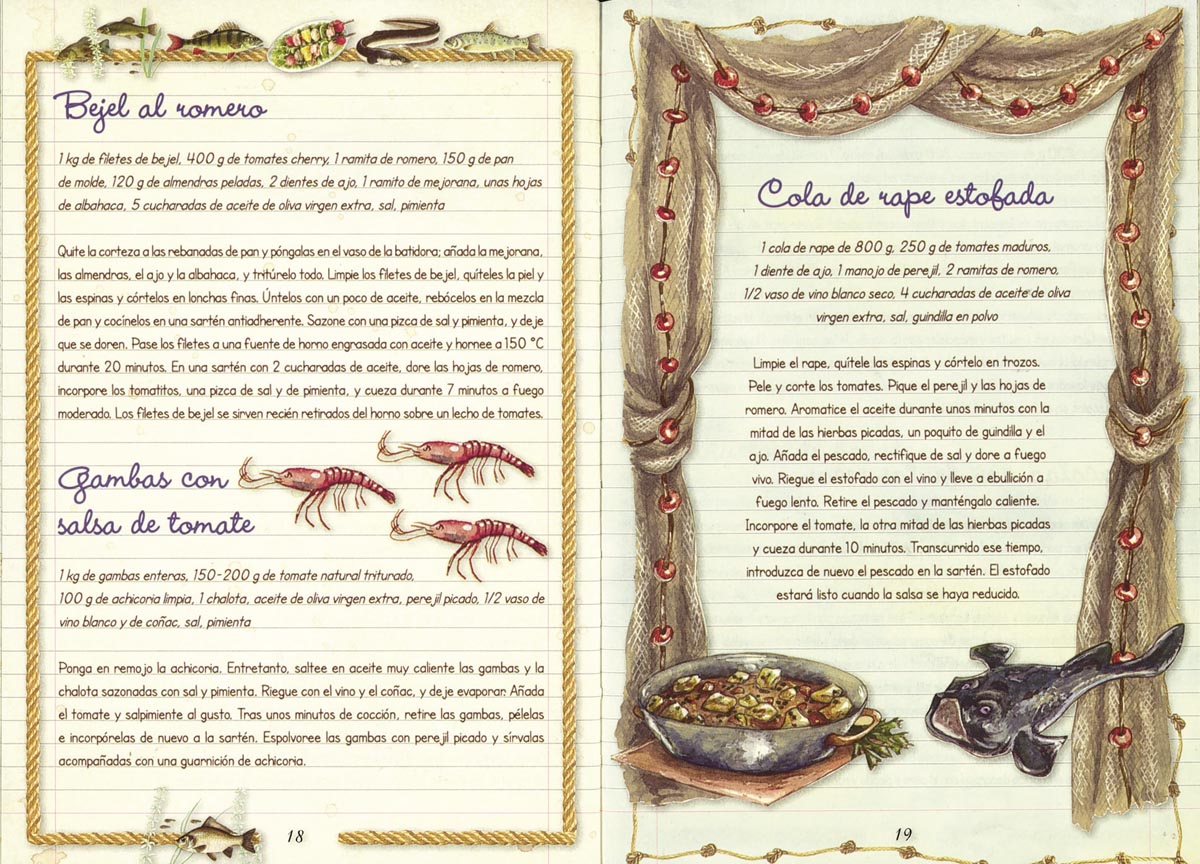 Bejel al romero
1 kg de filetes de bejel, 400 g de tomates cherry, 1 ramita de romero, 150 g de pan
de molde, 120 g de almendras peladas, 2 dientes de ajo, 1 ramito de mejorana, unas hojas
de albahaca, 5 cucharadas de aceite de oliva virgen extra, sal, pimienta
Quite la corteza a las rebanadas de pan y póngalas en el vaso de la batidora; añada la mejorana,
las almendras, el ajo y la albahaca, y tritúrelo todo. Limpie los filetes de bejel, quíteles la piel y
las espinas y córtelos en lonchas finas. Úntelos con un poco de aceite, rebócelos en la mezcla
de pan y cocínelos en una sartén antiadherente. Sazone con una pizca de sal y pimienta, y deje
que se doren. Pase los filetes a una fuente de horno engrasada con aceite y hornee a 150 °C
durante 20 minutos. En una sartén con 2 cucharadas de aceite, dore las hojas de romero,
incorpore los tomatitos, una pizca de sal y de pimienta, y cueza durante 7 minutos a fuego
moderado. Los filetes de bejel se sirven recién retirados del horno sobre un lecho de tomates.
Gambas con
salsa de tomate
1 kg de gambas enteras, 150-200 g de tomate natural triturado,
100 g de achicoria limpia, 1 chalota, aceite de oliva virgen extra, perejil picado, 1/2 vaso de
vino blanco y de coñac, sal, pimienta
Ponga en remojo la achicoria. Entretanto, saltee en aceite muy caliente las gambas y la
chalota sazonadas con sal y pimienta. Riegue con el vino y el coñac, y deje evaporar. Añada
el tomate y salpimiente al gusto. Tras unos minutos de cocción, retire las gambas, pélelas
e incorpórelas de nuevo a la sartén. Espolvoree las gambas con perejil picado y sírvalas
acompañadas con una guarnición de achicoria.
18
Cola de rape estofada
1 cola de rape de 800 g, 250 g de tomates maduros,
1 diente de ajo, 1 manojo de perejil, 2 ramitas de romero,
1/2 vaso de vino blanco seco, 4 cucharadas de aceite de oliva
virgen extra, sal, guindilla en polvo
Limpie el rape, quítele las espinas y córtelo en trozos.
Pele y corte los tomates. Pique el perejil y las hojas de
romero. Aromatice el aceite durante unos minutos con la
mitad de las hierbas picadas, un poquito de guindilla y el
ajo. Añada el pescado, rectifique de sal y dore a fuego
vivo. Riegue el estofado con el vino y lleve a ebullición a
fuego lento. Retire el pescado y manténgalo caliente.
Incorpore el tomate, la otra mitad de las hierbas picadas
y cueza durante 10 minutos. Transcurrido ese tiempo,
introduzca de nuevo el pescado en la sartén. El estofado
estará listo cuando la salsa se haya reducido.
19